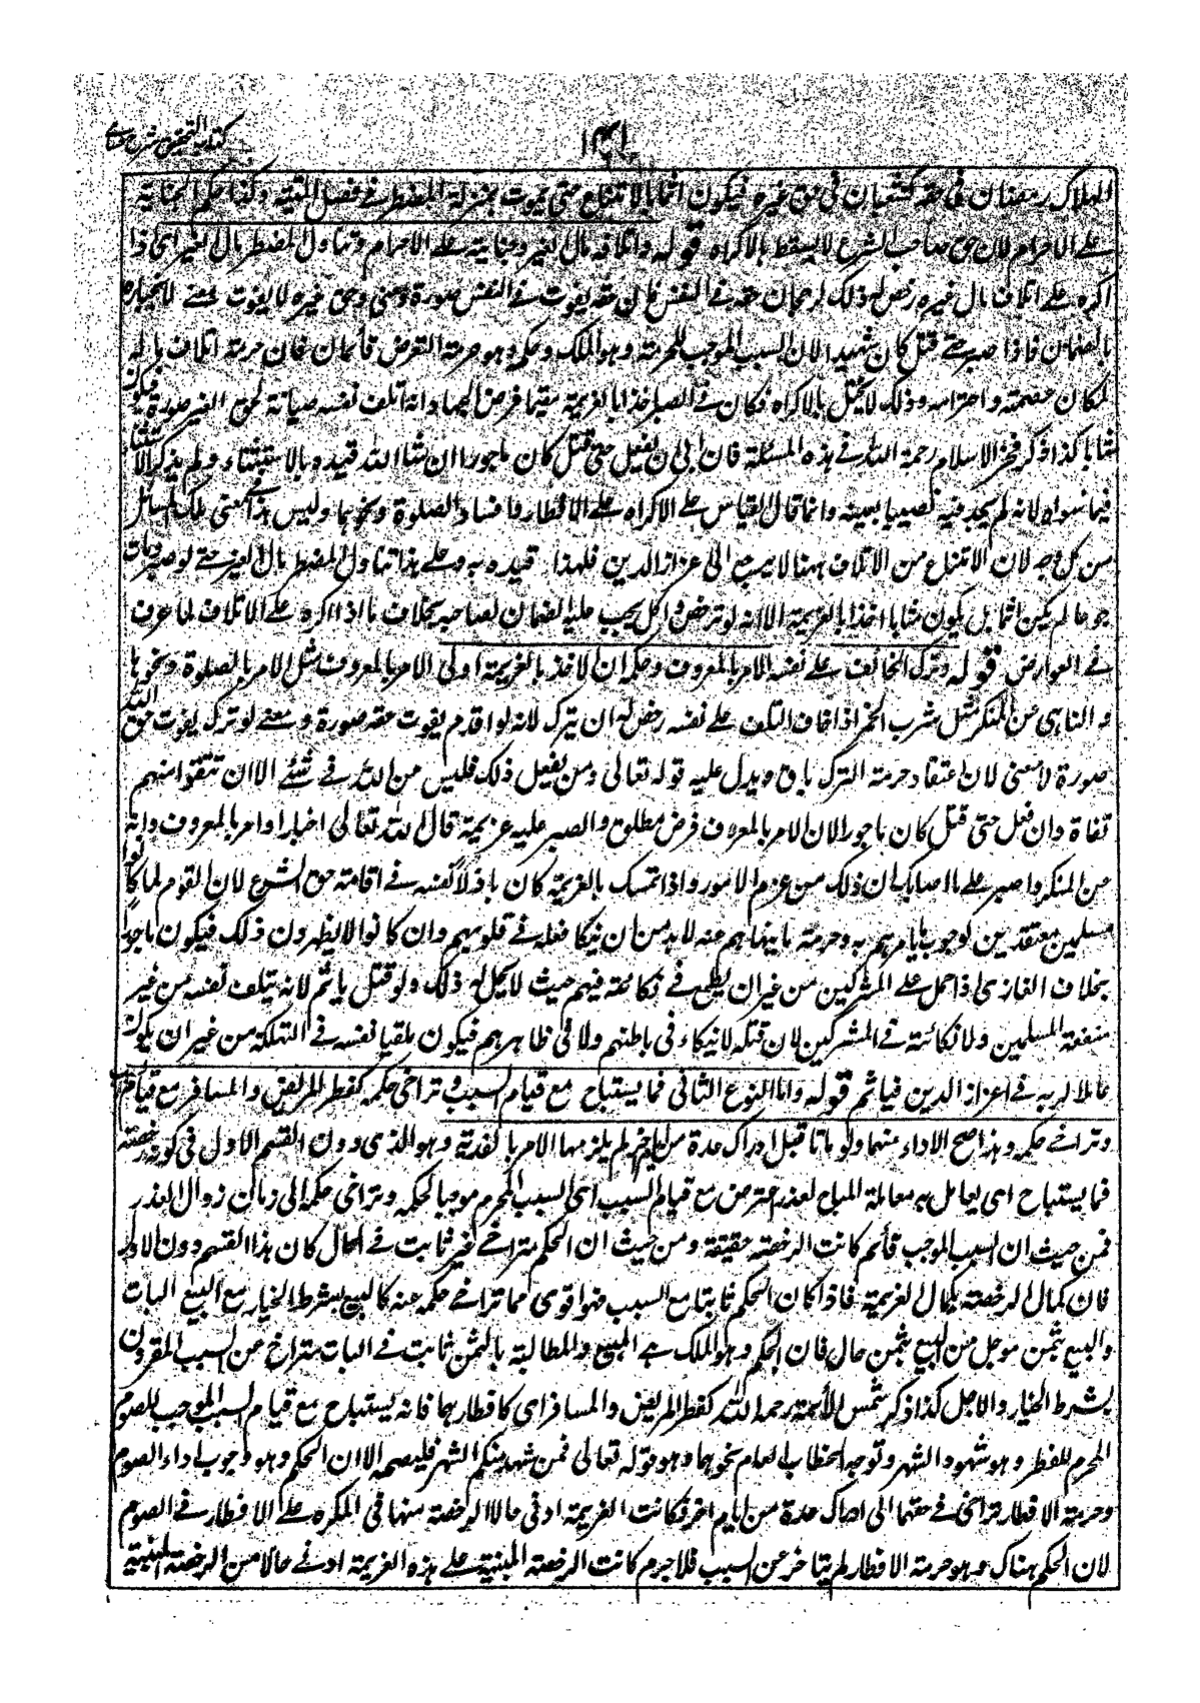 كتاب التحقيق شرح حسامي
١٤١
الهلاك رمضان في حقه كشعبان في حق غيره فيكون اثما بالامتناع حتى يموت بمنزلة المضطر في فصل الميتة وكذا حكم الجناية
على الاحرام لان حق صاحب الشرع لا يسقط بالاكراه قوله واتلافه مال الغير وجناية على الاحرام وتناول المضطر مال الغير اى اذا
اكره على اتلاف مال غيره رخص له ذلك لرجحان حقه في النفس فان حقه يفوت في النفس صورة ومعنى وحق غيره لا يفوت معنى لانجباره
بالضمان فاذا صبر حتى قتل كان شهيدا لان السبب الموجب للحرمة وهو الملك وحكمه وهو حرمة التعرض قائمان فان حرمة اتلاف ماله
لمكان عصمته واحترامه وذلك لا يختل بالاكراه فكان في الصبر اخذا بالعزيمة مقيما فرض الجهاد لانه اتلف نفسه صيانة لحق الغير صورة فيكون
مثابا كذا ذكر فخر الاسلام رحمة الله في هذه المسئلة فان ابى ان يفعل حتى قتل كان ماجورا ان شاء الله قيده بالاستثناء ولم يذكر الاستثناء
فيما سواه لانه لم يجد فيه نصا بعينه وانما قال بالقياس على الاكراه على الافطار وافساد الصلوة ونحوهما وليس هذا في معنى تلك المسائل
من كل وجه لان الامتناع من الاتلاف ههنا لا يرجع الى اعزاز الدين فلهذا قيده به وعلى هذا تناول المضطر مال الغير حتى لو صبر ومات
جوعا لم يكن اثما بل يكون مثابا اخذا بالعزيمة الا انه لو ترخص واكل يجب عليه الضمان لصاحبه بخلاف ما اذا اكره على الاتلاف لما عرف
في العوارض قوله وترك الخائف على نفسه الامر بالمعروف وحكمه ان الاخذ بالعزيمة اولى الامر بالمعروف مثل الامر بالصلوة ونحوها
والناهى عن المنكر مثل شرب الخمر اذا خاف التلف على نفسه رخص له ان يترك لانه لو اقدم يفوت حقه صورة ومعنى لو ترك يفوت حق الله
صورة لا معنى لان اعتقاد حرمة الترك باق ويدل عليه قوله تعالى ومن يفعل ذلك فليس من الله في شئ الا ان تتقوا منهم
تقاة وان فعل حتى قتل كان ماجورا لان الامر بالمعروف فرض مطلق والصبر عليه عزيمة قال الله تعالى اخبارا وامر بالمعروف وانه
عن المنكر واصبر على ما اصابك ان ذلك من عزم الامور واذا تمسك بالعزيمة كان باذلا نفسه في اقامة حق الشرع لان القوم لما كانوا
مسلمين معتقدين لوجوب ما يامرهم به وحرمة ما ينهاهم عنه لا بد من ان ينكأ فعله في قلوبهم وان كانوا لا يظهرون ذلك فيكون ماجورا
بخلاف الغازى اذا حمل على المشركين من غير ان يطمع في نكائة فيهم حيث لا يحل له ذلك ولو قتل ياثم لانه يتلف نفسه من غير
منفعة المسلمين ولا نكائة في المشركين لان قتله لا ينكاء في باطنهم ولا في ظاهرهم فيكون ملقيا نفسه في التهلكة من غير ان يكون
عاملا لربه في اعزاز الدين فياثم قوله واما النوع الثانى فما يستباح مع قيام السبب وتراخى حكمه كفطر المريض والمسافر مع قيام السبب
وتراخى حكمه ولهذا صح الاداء منهما ولو ماتا قبل ادراك عدة من ايام اخر لم يلزمهما الامر بالفدية وهو الذى دون القسم الاول في كونه رخصة
فما يستباح اى يعامل به معاملة المباح لعذر اعترض مع قيام السبب اى السبب المحرم موجبا لحكمه وتراخى حكمه الى زمان زوال العذر
فمن حيث ان السبب الموجب قائم كانت الرخصة حقيقة ومن حيث ان الحكم متراخ غير ثابت في الحال كان هذا القسم دون الاول
فان كمال الرخصة بكمال العزيمة فاذا كان الحكم ثابتا مع السبب فهو اقوى مما تراخى حكمه عنه كالبيع بشرط الخيار مع البيع البات
والبيع بثمن موجل من البيع بثمن حال فان الحكم وهو الملك في المبيع والمطالبة بالثمن ثابت في البات متراخ عن السبب المقرون
بشرط الخيار والاجل كذا ذكر شمس الأئمة رحمه الله كفطر المريض والمسافر اى كافطارهما فانه يستباح مع قيام السبب الموجب للصوم
المحرم للفطر وهو شهود الشهر وتوجه الخطاب العام نحوهما وهو قوله تعالى فمن شهد منكم الشهر فليصمه الا ان الحكم وهو وجوب اداء الصوم
وحرمة الافطار تراخى في حقهما الى ادراك عدة من ايام اخر فكانت العزيمة ادنى حالا الرخصة منها في المكره على الافطار في الصوم
لان الحكم هناك وهو حرمة الافطار لم يتاخر عن السبب فلا جرم كانت الرخصة المبنية على هذه العزيمة ادنى حالا من الرخصة المبنية